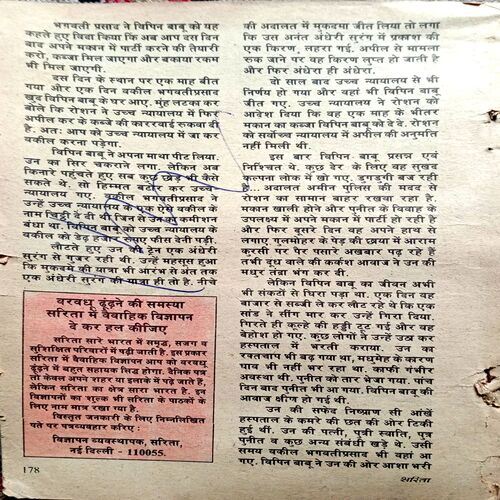 भगवती प्रसाद ने विपिन बाबू को यह
कहते हुए विदा किया कि अब आप दस दिन
बाद अपने मकान में पार्टी करने की तैयारी
करो, कब्जा मिल जाएगा और बकाया रकम
भी मिल जाएगी.
दस दिन के स्थान पर एक माह बीत
गया और एक दिन वकील भगवतीप्रसाद
खुद विपिन बाबू के घर आए. मुंह लटका कर
बोले कि रोशन ने उच्च न्यायालय में फिर
अपील कर के कब्जे की काररवाई रुकवा दी
है. अतः आप को उच्च न्यायालय में जा कर
वकील करना पड़ेगा.
विपिन बाबू ने अपना माथा पीट लिया.
उन का सिर चकराने लगा. लेकिन अब
किनारे पहुंचते हुए सब कुछ छोड़ भी कैसे
सकते थे. सो हिम्मत बटोर कर उच्च
न्यायालय गए. वकील भगवतीप्रसाद ने
उन्हें उच्च न्यायालय के एक ऐसे वकील के
नाम चिट्ठी दे दी थी जिन से उन का कमीशन
बंधा था. विपिन बाबू को उच्च न्यायालय के
वकील को डेढ़ हजार रुपए फीस देनी पड़ी.
लौटते हुए उन की ट्रेन एक अंधेरी
सुरंग से गुजर रही थी. उन्हें महसूस हुआ
कि मुकदमे की यात्रा भी आरंभ से अंत तक
एक अंधेरी सुरंग की यात्रा ही तो है. नीचे
वरवधू ढूंढ़ने की समस्या
सरिता में वैवाहिक विज्ञापन
दे कर हल कीजिए
सरिता सारे भारत में समृद्ध, सजग व
सुशिक्षित परिवारों में पढ़ी जाती है. इस प्रकार
सरिता में वैवाहिक विज्ञापन आप को वरवधू
ढूंढ़ने में बहुत सहायक सिद्ध होगा. दैनिक पत्र
तो केवल अपने शहर या इलाके में पढ़े जाते हैं,
लेकिन सरिता का क्षेत्र सारा भारत है. इन
विज्ञापनों का शुल्क भी सरिता के पाठकों के
लिए नाम मात्र रखा गया है.
विस्तृत जानकारी के लिए निम्नलिखित
पते पर पत्रव्यवहार करिए :
विज्ञापन व्यवस्थापक, सरिता,
नई दिल्ली - 110055.
178
की अदालत में मुकदमा जीत लिया तो लगा
कि उस अनंत अंधेरी सुरंग में प्रकाश की
एक किरण, लहरा गई. अपील से मामला
रुक जाने पर वह किरण लुप्त हो जाती है
और फिर अंधेरा ही अंधेरा.
दो साल बाद उच्च न्यायालय से भी
निर्णय हो गया और वहां भी विपिन बाबू
जीत गए. उच्च न्यायालय ने रोशन को
आदेश दिया कि वह एक माह के भीतर
मकान का कब्जा विपिन बाबू को दे दे. रोशन
को सर्वोच्च न्यायालय में अपील की अनुमति
नहीं मिली थी.
इस बार विपिन बाबू प्रसन्न एवं
निश्चिंत थे. कुछ देर के लिए वह सुखद
कल्पना लोक में खो गए. डुगडुगी बज रही
है... अदालत अमीन पुलिस की मदद से
रोशन का सामान बाहर रखवा रहा है.
मकान खाली होने और पुनीत के विवाह के
उपलक्ष्य में अपने मकान में पार्टी हो रही है
और फिर दूसरे दिन वह अपने हाथ से
लगाए गुलमोहर के पेड़ की छाया में आराम
कुरसी पर पैर पसारे अखबार पढ़ रहे हैं
तभी दूध वाले की कर्कश आवाज ने उन की
मधुर तंद्रा भंग कर दी.
लेकिन विपिन बाबू का जीवन अभी
भी संकटों से घिरा पड़ा था. एक दिन वह
बाजार से सब्जी ले कर लौट रहे थे कि एक
सांड ने सींग मार कर उन्हें गिरा दिया.
गिरते ही कूल्हे की हड्डी टूट गई और वह
बेहोश हो गए. कुछ लोगों ने उन्हें उठा कर
हस्पताल में भरती कराया. उन का
रक्तचाप भी बढ़ गया था, मधुमेह के कारण
घाव भी नहीं भर रहा था. काफी गंभीर
अवस्था थी. पुनीत को तार भेजा गया. पांच
दिन बाद पुनीत भी आ गया. विपिन बाबू की
आवाज क्षीण हो गई थी.
उन की सफेद निष्प्राण सी आंखें
हस्पताल के कमरे की छत की ओर टिकी
हुई थीं. उन की पत्नी, पुत्री स्वाति, पुत्र
पुनीत व कुछ अन्य संबंधी खड़े थे. उसी
समय वकील भगवतीप्रसाद भी वहां आ
गए. विपिन बाबू ने उन की ओर आशा भरी
सरिता